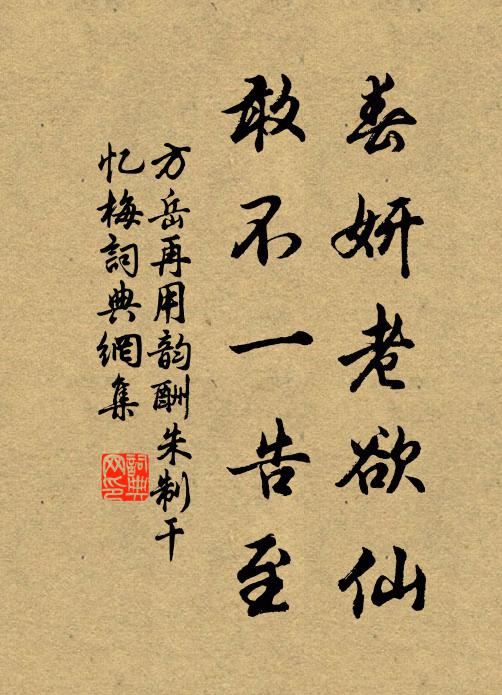 春妍老欲仙
敢不一告至
方岳再用韵酬朱制干
忆梅詞典網集
詞典
网印